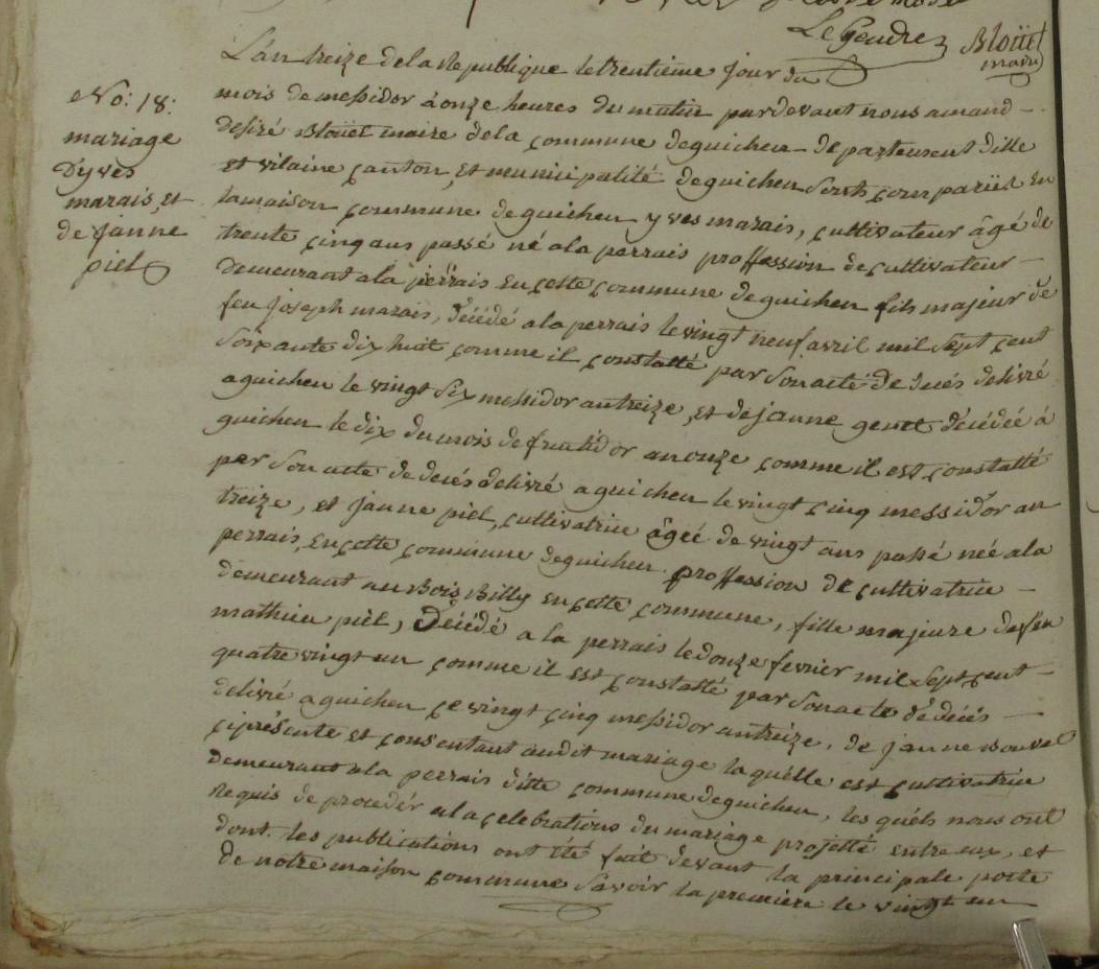 Le Gendre Bloüet
maire
No: 18:
mariage
D'yves
marais, et
de janne
piel
L'an treize de la Republique le trentieme jour du
mois de messidor à onze heures du matin pardevant nous amand
desiré Blouët maire de la commune de guichen departement dille
et vilaine canton, et municipalité de guichen sont comparüs en
la maison commune de guichen yves marais, cultivateur âgé de
trente cinq ans passé né a la perrais proffession de cultivateur
demeurant a la perrais en cette commune de guichen fils majeur de
feu joseph marais, décédé a la perrais le vingt neuf avril mil sept cent
soixante dix huit comme il constatté par son acte de decés delivré
a guichen le vingt six messidor an treize, et de janne décédée à
guichen le dix du mois de fructidor an onze comme il est constatté
par son acte de decés delivré a guichen le vingt cinq messidor an
treize, et janne piel, cultivatrice âgée de vingt ans passé née a la
perrais, en cette commune de guichen proffession de cultivatrice
demeurant au Bois Billy en cette commune, fille majeure de feu
mathieu piel, Décédé a la perrais le donze fevrier mil sept cent
quatre vingt un comme il est constatté par son acte de decés
delivré a guichen ce vingt cinq messidor an treize, de janne
ciprésente et consentant audit mariage laquélle est cultivatrice
demeurant a la perrais ditte commune de guichen, les quéls nous ont
Requis de procedér a la celebrations du mariage projetté entre eux, et
dont les publications ont été fait devant la principale porte
de notre maison commune savoir la premiere le vingt un